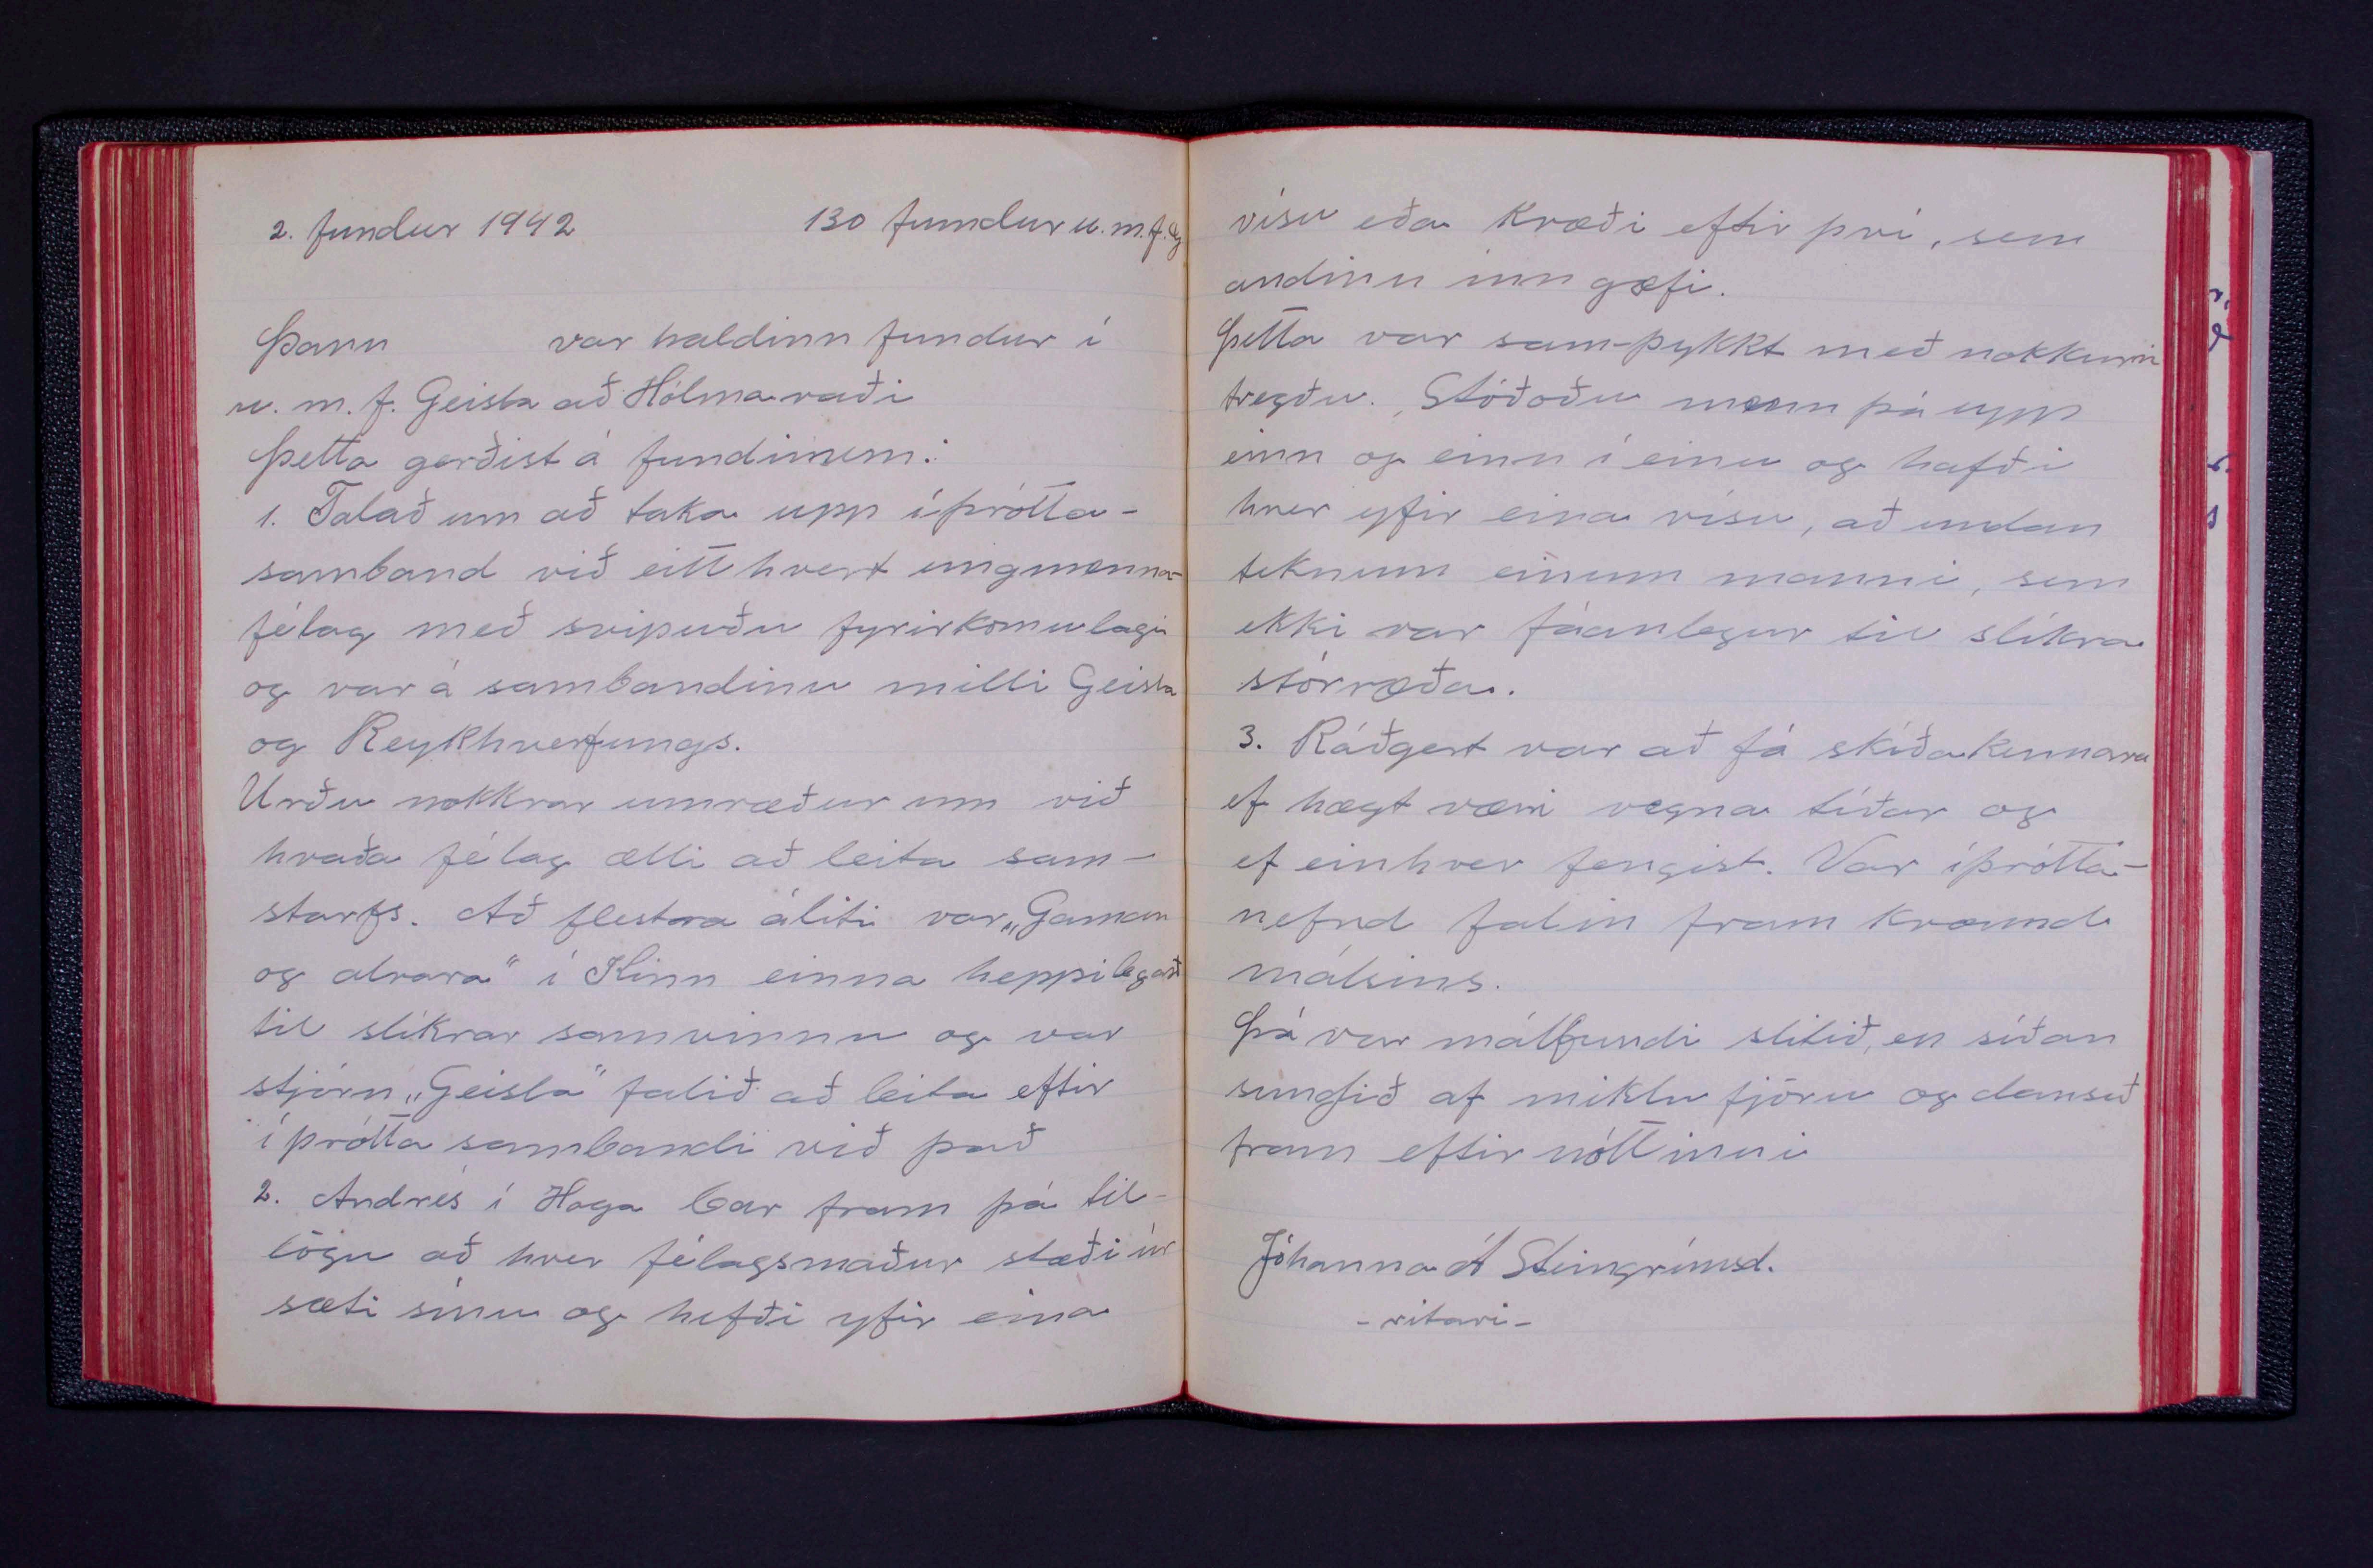 2. fundur 1942 130 fundur u.m.f. G
Þann var haldinn fundur í
u.m.f. Geisla að Hólmavaði
Þetta gerðist á fundinum:
1. Talað um að taka upp íþrótta-
samband við eitthvert ungmenna-
félag með svipuðu fyrirkomulagi
og var á sambandinu milli Geisla
og Reykhverfungs.
Urðu nokkrar umræður um við
hvaða félag ætti að leita sam-
starfs. Að flestra áliti var „Gaman
og alvara" í Kinn einna heppilegast
til slíkrar samvinnu og var
stjórn „Geisla" falið að leita eftir
íþrótta sambandi við það
2. Andrés í Haga bar fram þá til-
lögu að hver félagsmaður stæði úr
sæti sínu og hefði yfir eina
vísu eða kvæði eftir því, sem
andinn inn gæfi.
Þetta var sam-þykkt með nokkurri
tregðu. Stóðoðu menn þá upp
einn og einn í einu og hafði
hver yfir eina vísu, að undan
teknum einum manni, sem
ekki var fáanlegur til slíkra
stórræða.
3. Ráðgert var að fá skíðakennara
ef hægt væri vegna tíðar og
ef einhver fengist. Var íþrótta-
nefnd falin fram kvæmd
málsins.
Þá var málfundi slitið, en síðan
sungið af miklu fjöru og dansað
fram eftir nóttinni
Jóhanna Á Steingrímsd.
- ritari -